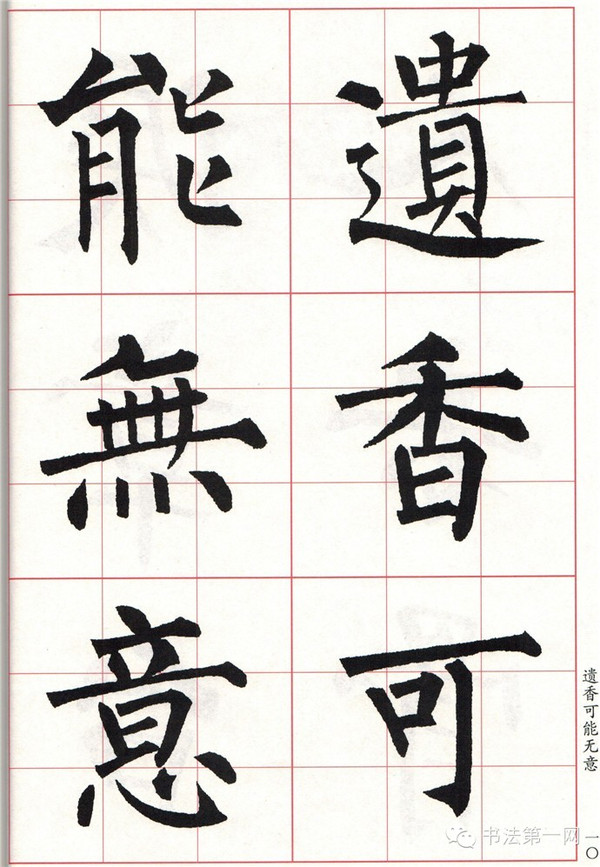 遺香可
能無意
遗香可能无意
一〇
书法第一网